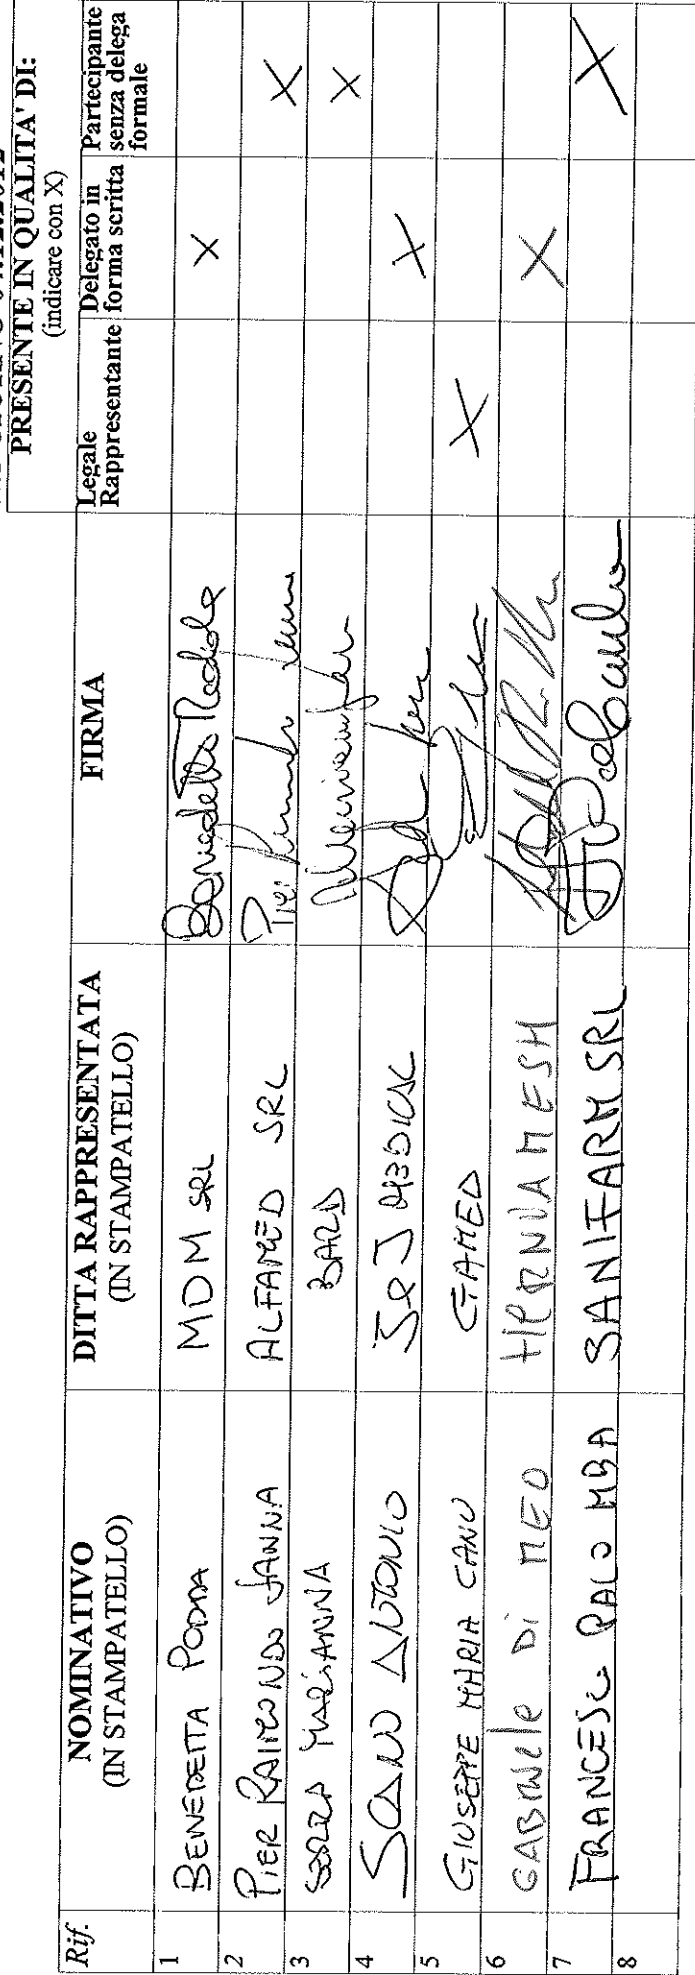 PRESENTE IN QUALITA' DI:
(indicare con X)
Rif.
NOMINATIVO
(IN STAMPATELLO)
DITTA RAPPRESENTATA
(IN STAMPATELLO)
FIRMA
Legale
Rappresentante
Delegato in
forma scritta
Partecipante
senza delega
formale
1 BENEDETTA PODDA MDM SRL X
2 PIER RAIMONDO JANNA ALFAMED SRL Pier X
3 MARIANNA BARD X
4 ANTONIO J&J MEDICAL X
5 GIUSEPPE MARIA CANU GAMED X
6 GABRIELE DI MEO HERNIAMESH X
7 FRANCESCO MBA SANIFARM SRL X
8